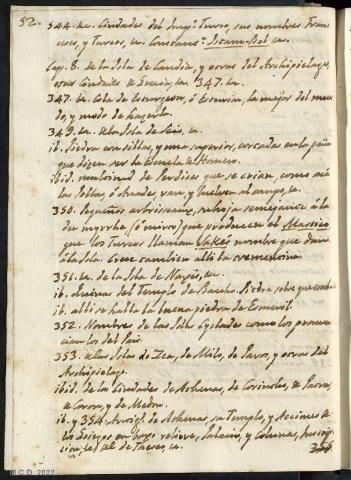 52.
344. &c. Ciudades del Imp.º Turco, sus nombres Fran-
ceses, y Turcos, &c. Constanno. Istam-Bol &c.
Cap. 8. de la Isla de Candia, y otras del Archipielago,
otras Ciudades de Grecia, &c. 347. &c.
347. &c. Cola de Esturgeon, ó Esturion, la mejor del mun-
do, y modo de hacerla.
349. &c. de la Isla de Scio, &c.
ib. Piedra con sillas, y una superior, cortadas en la peña
que dizen ser la Escuela de Homero.
ibid. multitud de Perdices que se crian, como acá
las Pollas, ó Anades van, y buelven al campo, &c.
350. Pequeños arboriseaux, su hoja semejante á la
du myrrhe (ó mirro) que producen el Mastico
que los Turcos llaman Sakes nombre que dan
á la Isla. Crece tambien alli la trementina.
351. &c. de la Isla de Naxis, &c.
ib. Ruinas del Templo de Bacho. Piedra sobre que
ib. alli se halla la buena piedra de Esmeril.
352. Nombres de las Islas Cyclades como los pronun-
cian los del Pais.
353. de las Islas de Zea, de Milo, de Paros, y otras del
Archipielago.
ibid. de las Ciudades de Athenas, de Corinthos, de Patras,
de Coron, y de Modon.
ib. y 354. Antig.s de Athenas, su Templo, y Acciones de
los Griegos en baxo relieve, Palacio, y Colunas, Inscrip-
cion, &c. al de Theseo, &c.
M.C.D. 2022